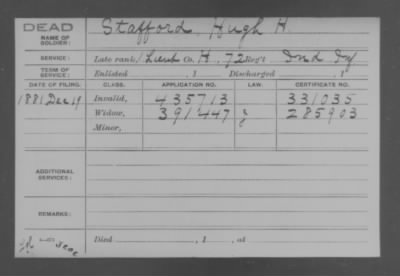 DEAD
NAME OF SOLDIER: Stafford, Hugh H.
SERVICE: Late rank, 1 Lieut Co. H, 72 Reg't Ind Inf
TERM OF SERVICE: Enlisted , 1 Discharged , 1
DATE OF FILING. CLASS. APPLICATION NO. LAW. CERTIFICATE NO.
1881 Dec 19 Invalid, 435713 331035
Widow, 391447 285903
Minor,
ADDITIONAL SERVICES:
REMARKS:
Died , 1 , at